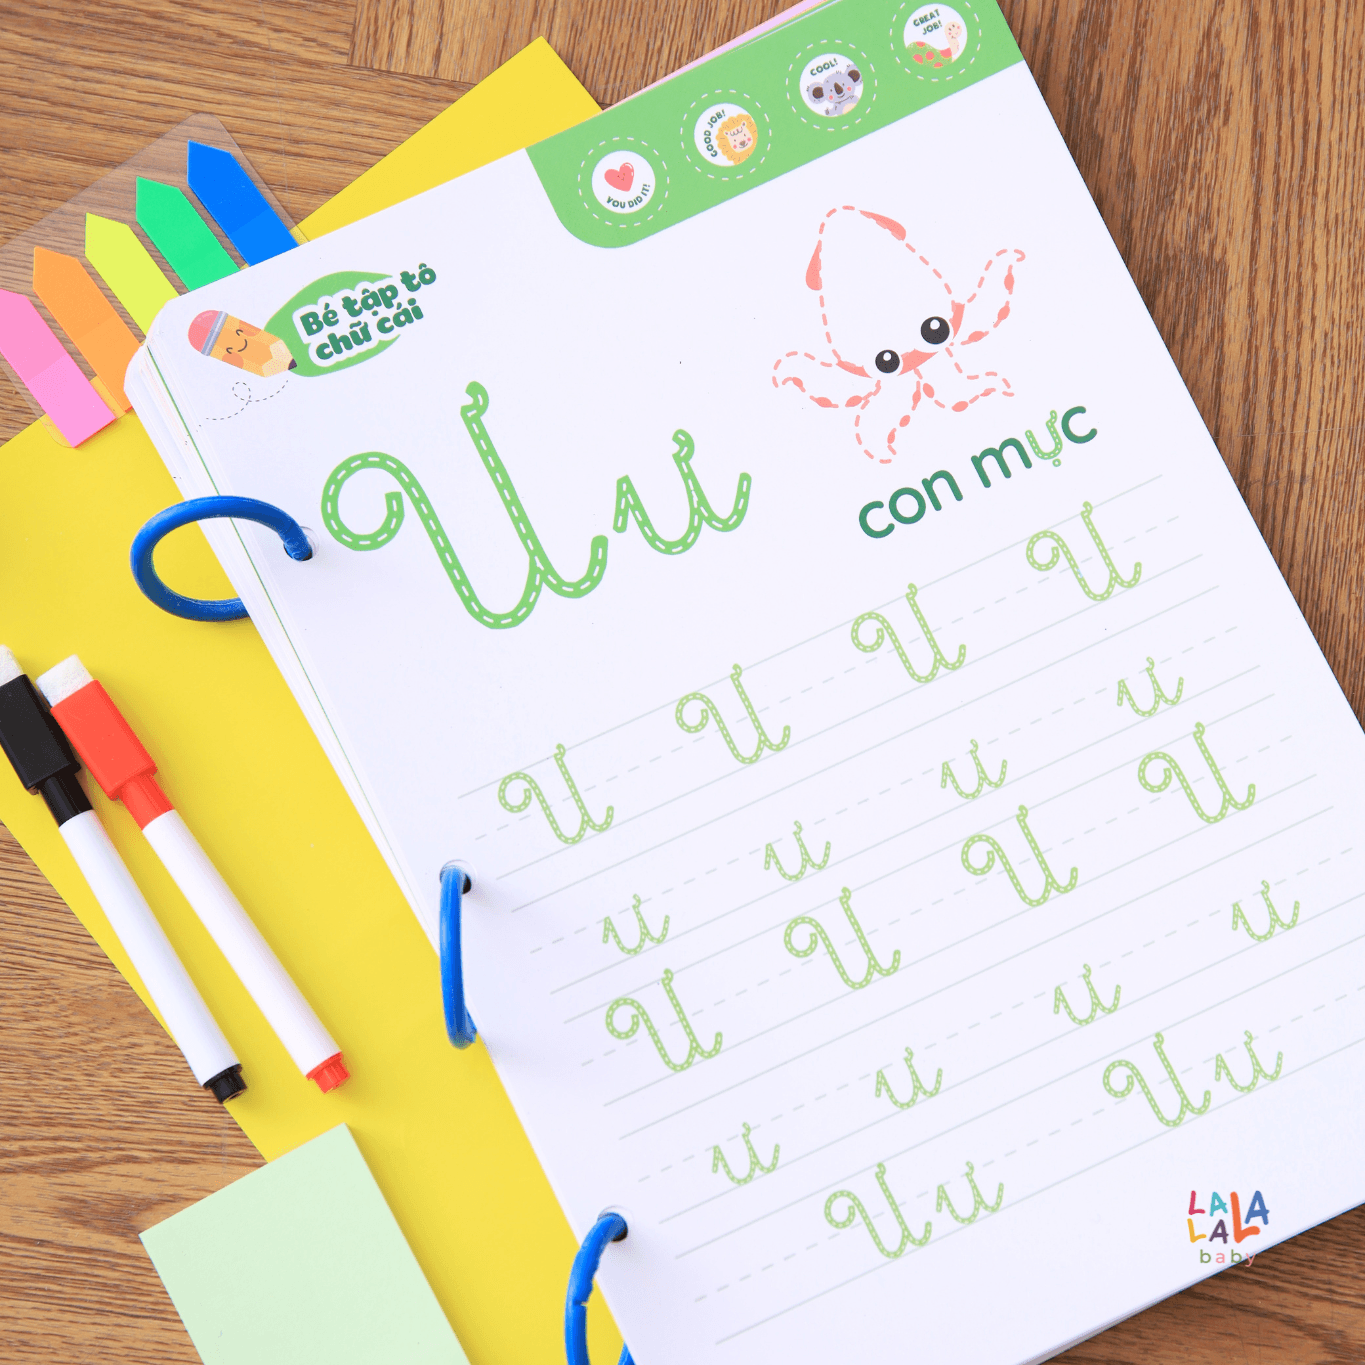 YOU DID IT!
GOOD JOB!
COOL!
GREAT JOB!
Bé tập tô
chữ cái
Ư ư
con mực
Ư Ư Ư Ư
ư ư ư ư
Ư Ư Ư Ư
ư ư ư ư
Ư ư Ư ư
LALA
LALA
baby